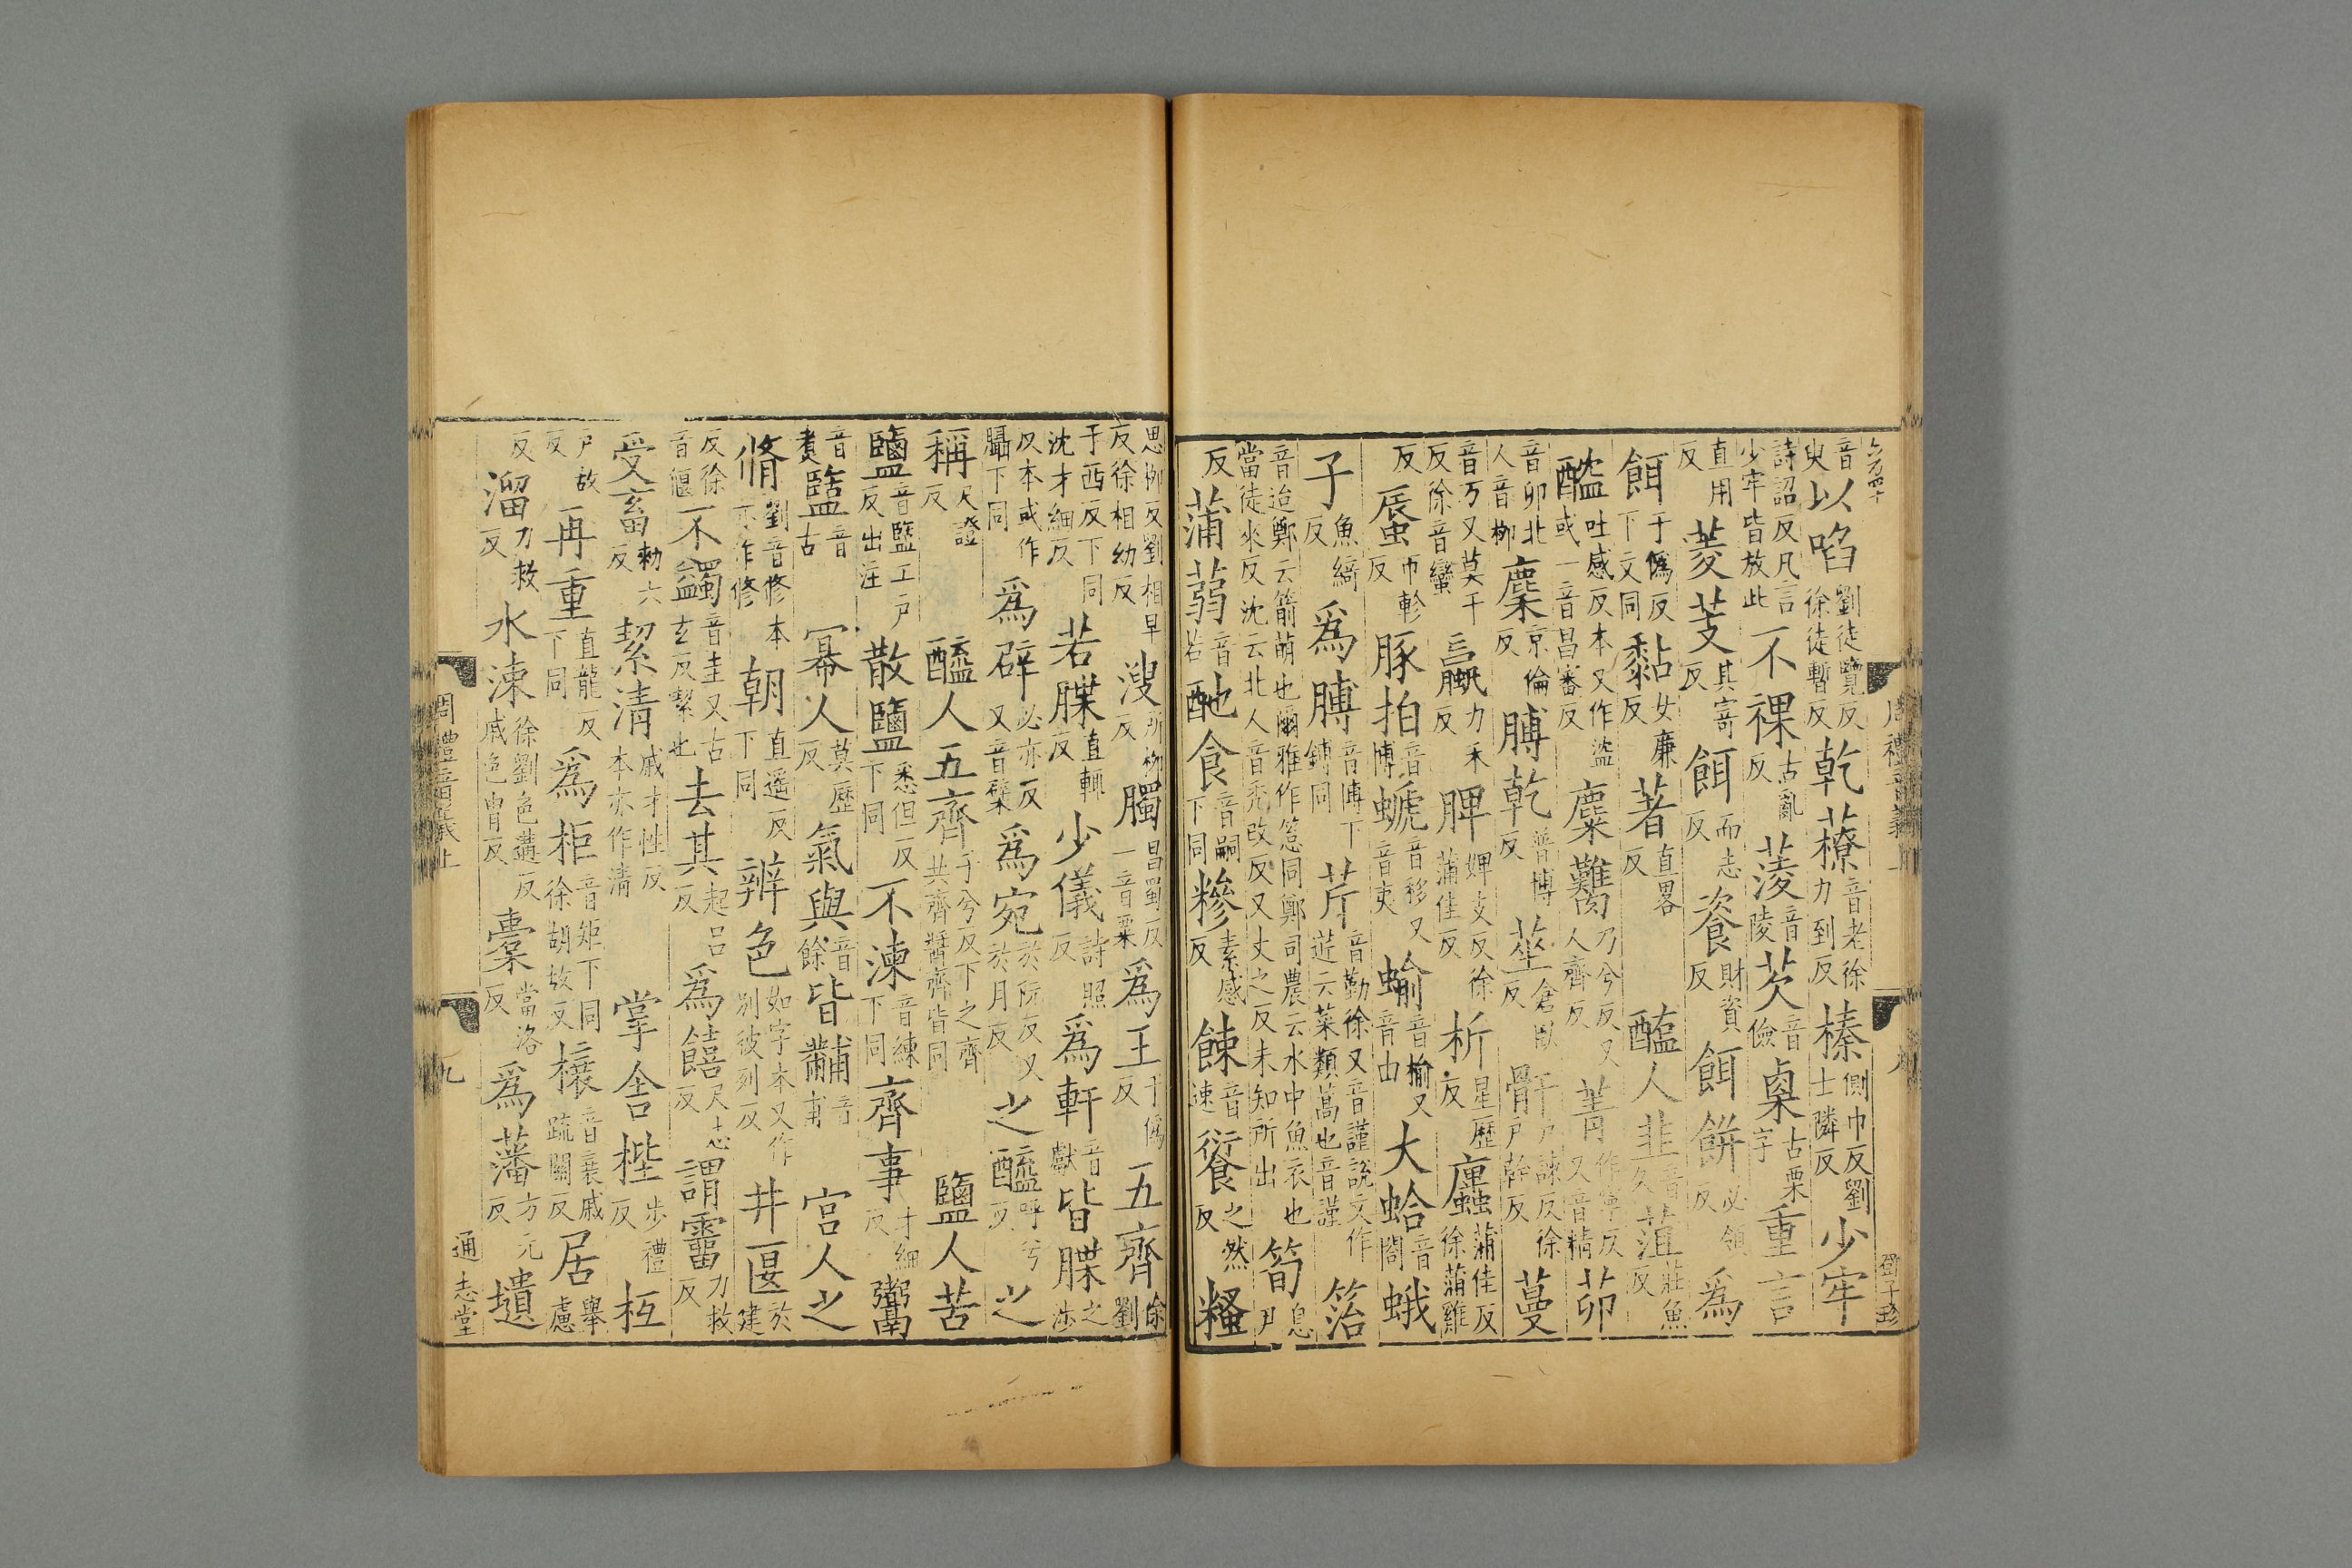 音臾以啗劉徒覽反徐徒暫反乾䕩音老徐力到反榛側巾反劉士隣反少牢
詩詔反凡言少牢皆放此不祼古亂反蔆音陵芡音儉㮚古栗字重言
直用反菱芰其寄反餌而志反餈財資反餌餅必領反爲
餌于僞反下文同黏女廉反著直畧反醓人韭音久菹莊魚反
醓吐感反本又作盗或一音昌審反麋臡乃兮反又人齊反菁作寧反又音精茆
音卯北人音柳麇京倫反膊乾普博反莝倉臥反骭戸諫反徐戸幹反蔓
音万又莫干反徐音蠻蠃力禾反脾婢支反徐蒲佳反析星歷反蠯蒲佳反徐蒲雞
反蜃市軫反豚拍音博螔音移又音夷蝓音榆又音由大蛤音閤蛾
子魚綺反爲膊音博下鎛同芹音勤徐又音謹說文作菦云菜類蒿也音謹箈
音迨鄭云箭萌也爾雅作䈚同鄭司農云水中魚衣也當徒來反沈云北人音秃改反又丈之反未知所出筍息尹
反蒲蒻音若酏食音嗣下同糝素感反餗音速䭈之然反糔
周禮音義上 九 鄧子珍
思柳反劉相早反徐相幼反溲所柳反臅昌蜀反一音粟爲王于僞反五齊徐劉
子西反下同沈才細反若牒直輒反少儀詩照反爲軒音獻皆牒之涉
反本或作聶下同爲辟必亦反又音檗爲宛於阮反又於月反之醯呼兮反之
稱尺證反醯人五齊子兮反下之齊共齊醬齊皆同鹽人苦
鹽音盬工戸反出注散鹽悉但反下同不湅音練下同齊事才細反鬻
音煑盬音古冪人莫歷反氣與音餘皆黼音甫宫人之
脩劉音修本亦作修朝直遥反下同辨色如字本又作别彼列反井匽於建
反徐音偃不蠲音圭又古玄反絜也去其起呂反爲饎尺志反謂霤力救反
受畜勑六反絜清戚才性反本亦作清掌舍梐步禮反枑
戸故反再重直龍反下同爲柜音矩下同徐胡故反欀音襄戚䟽關反居舉慮
反溜力救反水湅徐劉色遘反戚色胄反櫜當洛反爲藩方元反壝
周禮音義上 九 通志堂